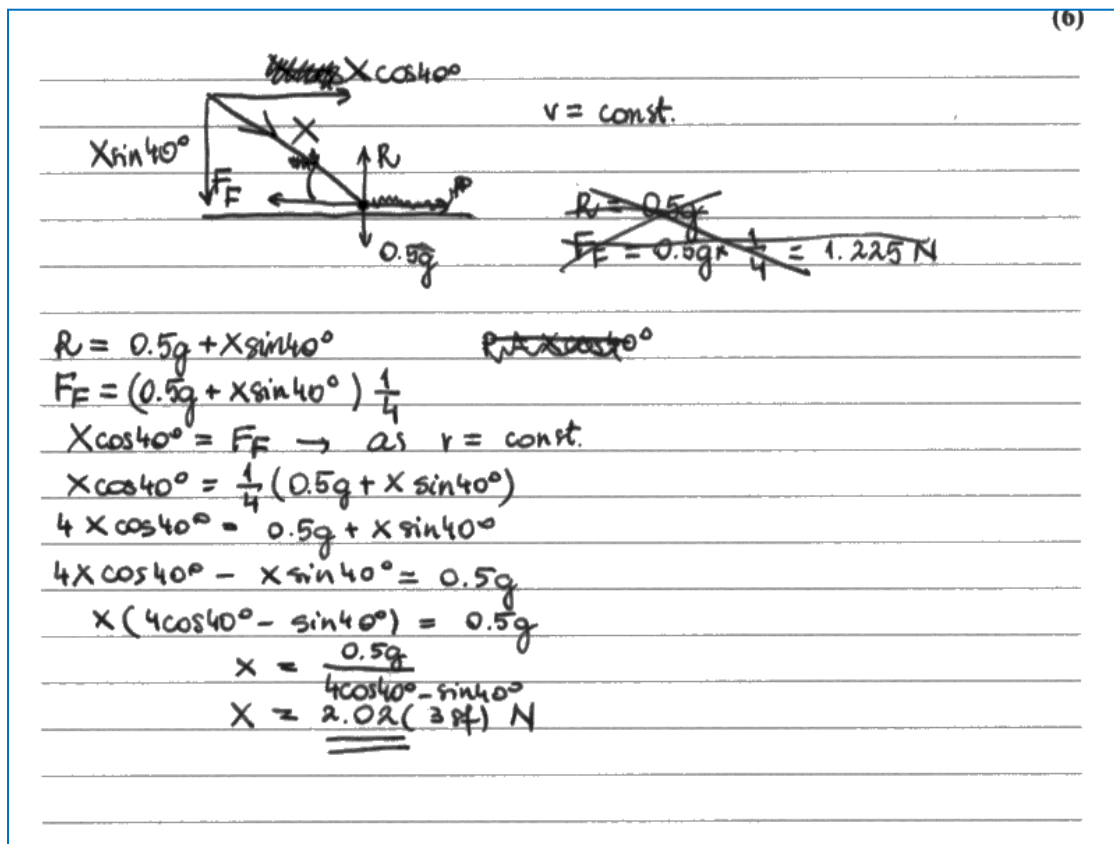 (6)
X cos40°
v = const.
X sin 40°
X
R
F_F
0.5g
R = 0.5g
F_F = 0.5g × 1/4 = 1.225 N
R = 0.5g + X sin40°
F_F = (0.5g + X sin 40°) 1/4
X cos40° = F_F → as v = const.
X cos40° = 1/4 (0.5g + X sin40°)
4 X cos40° = 0.5g + X sin40°
4X cos40° - X sin40° = 0.5g
X (4cos40° - sin40°) = 0.5g
X = 0.5g / 4cos40° - sin40°
X = 2.02 (3 sf) N